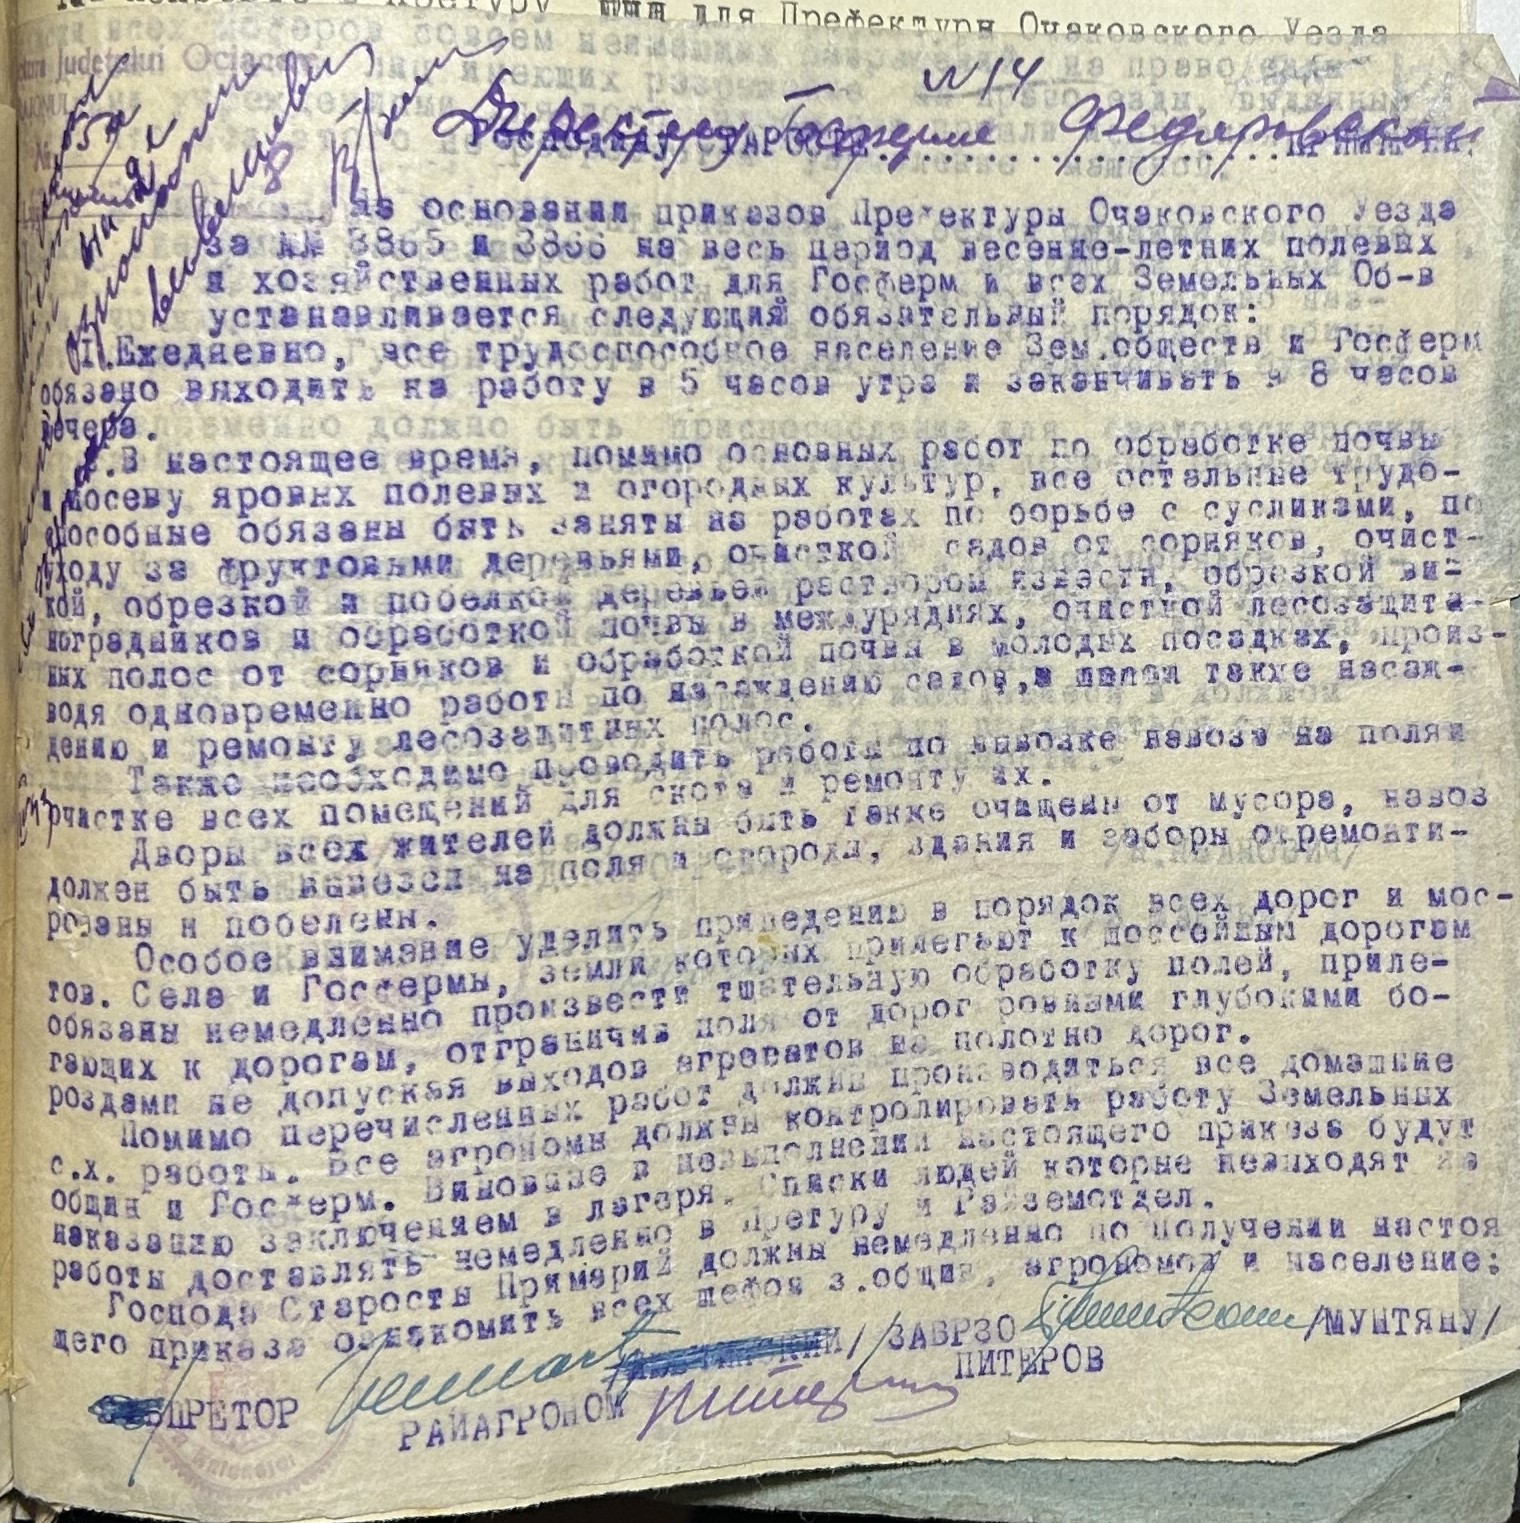 для Префектуры Очаковского Уезда
Judetului Ociacov
№14
Директору Госферме Федоровской
ГОСПОДИНУ СТАРОСТЕ
На основании приказов Префектуры Очаковского Уезда
за №№ 3865 и 3866 на весь период весенне-летних полевых
и хозяйственных работ для Госферм и всех Земельных Об-в
устанавливается следующий обязательный порядок:
I.Ежедневно, все трудоспособное население Зем.обществ и Госферм
обязано выходить на работу в 5 часов утра и заканчивать в 8 часов
вечера.
.В настоящее время, помимо основных работ по обработке почвы
и посеву яровых полевых и огородных культур, все остальные трудо-
способные обязаны быть заняты на работах по борьбе с сусликами, по
уходу за фруктовыми деревьями, очисткой садов от сорняков, очист-
кой, обрезкой и побелкой деревьев раствором извести, обрезкой ви-
ноградников и обработкой почвы в междурядиях, очисткой лесозащит-
ных полос от сорняков и обработкой почвы в молодых посадках, произ-
водя одновременно работы по насаждению садов, также насаж-
дению и ремонту лесозащитных полос.
Также необходимо проводить работы по вывозке навоза на поля и
очистке всех помещений для скота и ремонту их.
Дворы всех жителей должны быть также очищены от мусора, навоз
должен быть вывезен на поля и огороды, здания и заборы отремонти-
рованы и побелены.
Особое внимание уделить приведению в порядок всех дорог и мос-
тов. Села и Госфермы, земли которых прилегают к шоссейным дорогам
обязаны немедленно произвести тшательную обработку полей, приле-
гающих к дорогам, отграничив поля от дорог ровными глубокими бо-
роздами не допуская выходов агрегатов на полотно дорог.
Помимо перечисленных работ должны производиться все домашние
с.х. работы. Все агрономы должны контролировать работу Земельных
общин и Госферм. Виновные в невыполнении настоящего приказа будут
наказанию заключением в лагеря. Списки людей которые невыходят на
работы доставлять немедленно в Претуру и Райземотдел.
Господа Старосты Примарий должны немедленно по получении настоя
щего приказа ознакомить всех шефов з.общин, агрономов и население;
ПРЕТОР / ЗАВРЗО /МУНТЯНУ/
РАЙАГРОНОМ ПИТЕРОВ